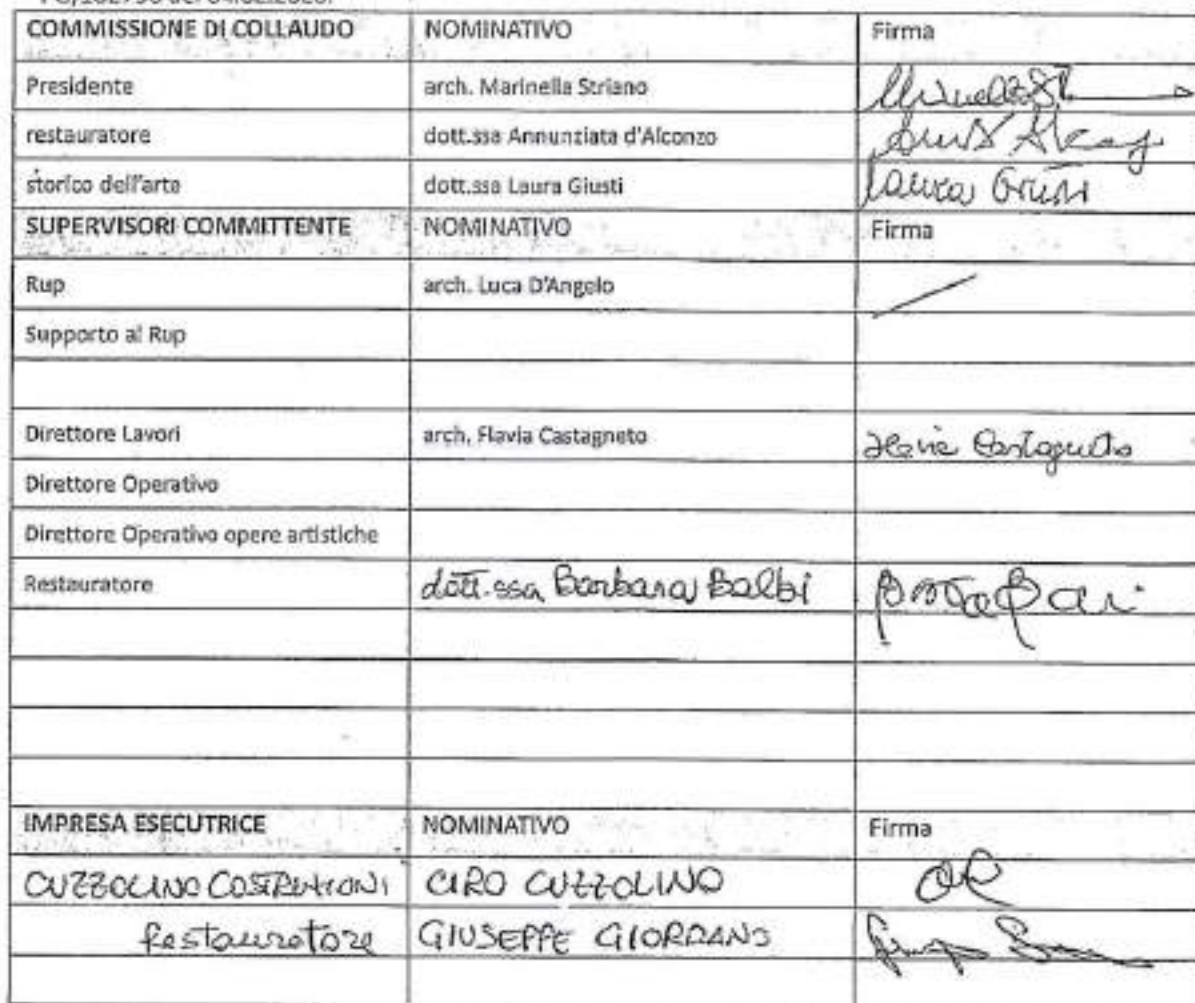 COMMISSIONE DI COLLAUDO NOMINATIVO Firma
Presidente arch. Marinella Striano
restauratore dott.ssa Annunziata d'Alconzo
storico dell'arte dott.ssa Laura Giusti Laura Giusti
SUPERVISORI COMMITTENTE NOMINATIVO Firma
Rup arch. Luca D'Angelo
Supporto al Rup
Direttore Lavori arch. Flavia Castagneto Flavia Castagneto
Direttore Operativo
Direttore Operativo opere artistiche
Restauratore dott.ssa Barbara Balbi
IMPRESA ESECUTRICE NOMINATIVO Firma
CUZZOLINO COSTRUZIONI CIRO CUZZOLINO
Restauratore GIUSEPPE GIORDANO